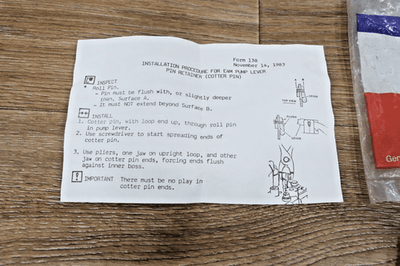 Form 156
November 16, 1987
INSTALLATION PROCEDURE FOR EAR PUMP LEVER
PIN RETAINER (COTTER PIN)
INSPECT
* Roll Pin.
- Pin must be flush with, or slightly deeper
than, Surface A.
- It MUST NOT extend beyond Surface B.
INSTALL
1. Cotter pin, with loop end up, through roll pin
in pump lever.
2. Use screwdriver to start spreading ends of
cotter pin.
3. Use pliers, one jaw on upright loop, and other
jaw on cotter pin ends, forcing ends flush
against inner boss.
! IMPORTANT There must be no play in
cotter pin ends.
Gen